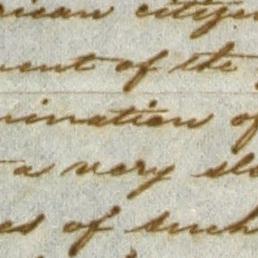 rican citizen
ment of the
mination of
a very slo
es of such